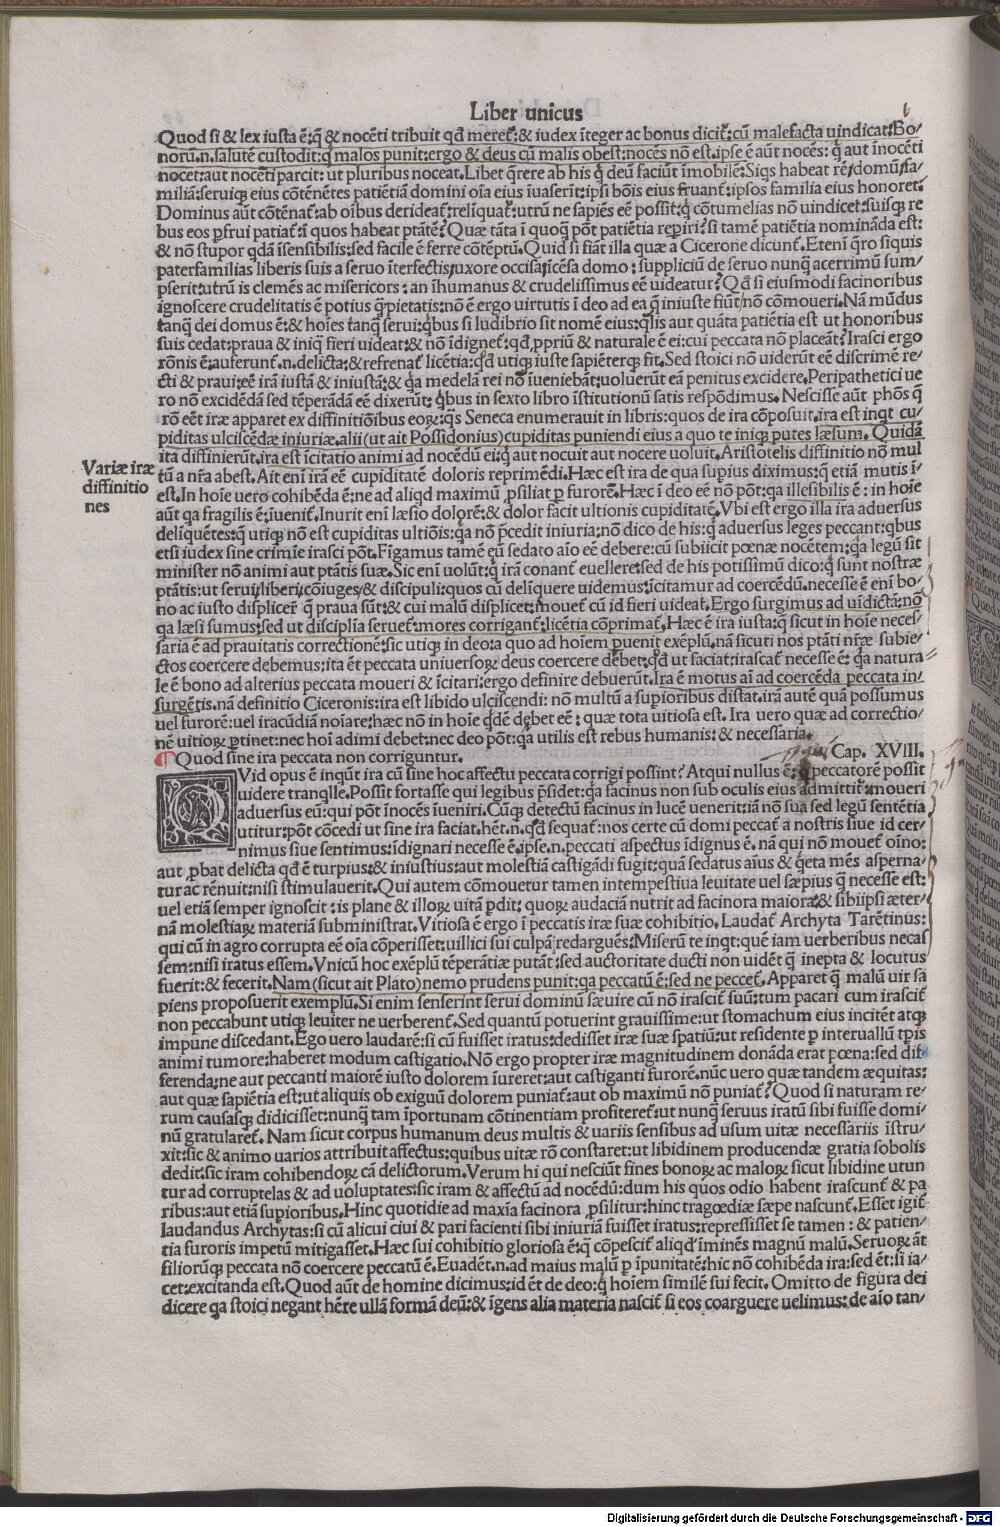 Liber unicus
Quod si & lex iusta ē:q̄ & nocēti tribuit qđ mereť:& iudex īteger ac bonus diciť:cū malefacta uindicat:Bo/
norū.n.salutē custodit:q̄ malos punit:ergo & deus cū malis obest:nocēs nō est.ipse ē aūt nocēs: q̄ aut īnocēti
nocet:aut nocēti parcit: ut pluribus noceat. Libet q̄rere ab his q̄ deū faciūt īmobilē: Siqs habeat rē/domū/fa/
miliā:seruiq; eius cōtēnētes patiētiā domini oīa eius īuaserīt:ipsi bōis eius fruanť:ipsos familia eius honoreť.
Dominus aūt cōtēnať:ab oībus derideať:relīquať:utrū ne sapiēs eē possit:q̄ cōtumelias nō uindicet:suisq; re
bus eos ꝑfrui patiať:ī quos habeat ptātē? Quæ tāta ī quoq̄ pōt patiētia reꝑiri? si tamē patiētia nomināda est:
& nō stupor qdā īsensibilis:sed facile ē ferre cōtēptū. Quid si fiāt illa quæ a Cicerone dicunť. Etenī q̄ro siquis
paterfamilias liberis suis a seruo īterfectis/uxore occisa/īcēsa domo: suppliciū de seruo nunq̄ acerrimū sum/
pserit:utrū is clemēs ac misericors: an īhumanus & crudelissimus eē uideatur? Qđ si eiusmodi facinoribus
ignoscere crudelitatis ē potius q̄ pietatis:nō ē ergo uirtutis ī deo ad ea q̄ iniuste fiūt/nō cōmoueri. Nā mūdus
tanq̄ dei domus ē:& hoīes tanq̄ serui:q̄bus si ludibrio sit nomē eius:q̄lis aut quāta patiētia est ut honoribus
suis cedat:praua & iniq̄ fieri uideat:& nō īdigneť:qđ ꝓpriū & naturale ē ei:cui peccata nō placeāt? Irasci ergo
rōnis ē:auferunť.n.delicta:& refrenať licētia:qđ utiq; iuste sapiēterq; fit. Sed stoici nō uiderūt eē discrimē re/
cti & praui:eē irā iustā & iniustā:& q̄a medelā rei nō īueniebāt:uoluerūt eā penitus excidere. Peripathetici ue
ro nō excidēdā sed tēperādā eē dixerūt: q̄bus in sexto libro īstitutionū satis respōdimus. Nescisse aūt phōs q̄
rō eēt iræ apparet ex diffinitiōibus eoꝝ:q̄s Seneca enumerauit in libris:quos de ira cōposuit.ira est inqt cu/
piditas ulciscēdæ iniuriæ.alii (ut ait Possidonius) cupiditas puniendi eius a quo te iniq; putes læsum. Quidā
ita diffinierūt.ira est īcitatio animi ad nocēdū ei:q̄ aut nocuit aut nocere uoluit. Aristotelis diffinitio nō mul
tū a nr̄a abest. Ait enī irā eē cupiditatē doloris reprimēdi. Hæc est ira de qua supius diximus:q̄ etiā mutis ī/
est. In hoīe uero cohibēda ē:ne ad aliqd maximū ꝓsiliat ꝑ furorē. Hæc ī deo eē nō pōt:qa illesibilis ē: in hoīe
aūt qa fragilis ē:īueniť. Inurit enī læsio dolorē:& dolor facit ultionis cupiditatē. Vbi est ergo illa ira aduersus
deliquētes:q̄ utiq; nō est cupiditas ultiōis: q̄a nō p̄cedit iniuria:nō dico de his:q̄ aduersus leges peccant:qbus
etsi iudex sine crimīe irasci pōt. Figamus tamē eū sedato aīo eē debere: cū subiicit pœnæ nocētem:q̄a legū sit
minister nō animi aut ptātis suæ. Sic enī uolūt:q̄ irā conanť euellere:sed de his potissimū dico:q̄ sunt nostræ
ptātis:ut serui/liberi/cōiuges/& discipuli:quos cū deliquere uidemus:īcitamur ad coercēdū.necesse ē enī bo/
no ac iusto displicere q̄ praua sūt:& cui malū displicet:moueť cū id fieri uideat. Ergo surgimus ad uīdictā:nō
qa læsi sumus:sed ut disciplīa serueť:mores corriganť:licētia cōprimať. Hæc ē ira iusta:q̄ sicut in hoīe neces/
saria ē ad prauitatis correctionē:sic utiq; in deo:a quo ad hoīem ꝑuenit exēplū.nā sicuti nos ptāti nr̄æ subie/
ctos coercere debemus:ita ēt peccata uniuersoꝝ deus coercere debet:qđ ut faciat:irascať necesse ē: q̄a natura/
le ē bono ad alterius peccata moueri & īcitari:ergo definire debuerūt. Ira ē motus aī ad coercēda peccata in/
surgētis.nā definitio Ciceronis:ira est libido ulciscendi: nō multū a supioribus distat.irā autē quā possumus
uel furorē:uel iracūdiā noīare:hæc nō in hoīe q̄dē debet eē: quæ tota uitiosa est. Ira uero quæ ad correctio/
nē uitioꝝ ꝑtinet:nec hoī adimi debet:nec deo pōt:q̄a utilis est rebus humanis: & necessaria.
Variæ iræ
diffinitio
nes
¶ Quod sine ira peccata non corriguntur. Cap. XVIII.
QVid opus ē inqūt ira cū sine hoc affectu peccata corrigi possint? Atqui nullus ē: q̄ peccatorē possit
uidere tranqlle. Possit fortasse qui legibus p̄sidet:q̄a facinus non sub oculis eius admittiť:moueri
aduersus eū:qui pōt īnocēs īueniri. Cūq; detectū facinus in lucē uenerit:iā nō sua sed legū sentētia
utitur:pōt cōcedi ut sine ira faciat.hēt.n.qđ sequať:nos certe cū domi peccať a nostris siue id cer/
nimus siue sentimus:īdignari necesse ē.ipse.n.peccati aspectus īdignus ē.nā qui nō moueť oīno:
aut ꝓbat delicta qđ ē turpius:& iniustius:aut molestiā castigādi fugit:quā sedatus aīus & q̄eta mēs asperna/
tur ac rēnuit:nisi stimulauerit. Qui autem cōmouetur tamen intempestiua leuitate uel sæpius q̄ necesse est:
uel etiā semper ignoscit: is plane & illoꝝ uitā ꝑdit: quoꝝ audaciā nutrit ad facinora maiora:& sibiipsi æter/
nā molestiaꝝ materiā subministrat. Vitiosa ē ergo ī peccatis iræ suæ cohibitio. Laudať Archyta Tarētinus:
qui cū in agro corrupta eē oīa cōperisset:uillici sui culpā redarguēs:Miserū te inqt:quē iam uerberibus necas
sem:nisi iratus essem. Vnicū hoc exēplū tēperātiæ putāt: sed auctoritate ducti non uidēt q̄ inepta & locutus
fuerit:& fecerit. Nam (sicut ait Plato) nemo prudens punit:qa peccatū ē:sed ne pecceť. Apparet q̄ malū uir sa
piens proposuerit exemplū. Si enim senserint serui dominū sæuire cū nō irasciť suū:tum pacari cum irasciť
non peccabunt utiq; leuiter ne uerberenť. Sed quantū potuerint grauissime:ut stomachum eius incitēt atq;
impune discedant. Ego uero laudarē:si cū fuisset iratus:dedisset iræ suæ spatiū:ut residente ꝑ interuallū tꝑis
animi tumore:haberet modum castigatio. Nō ergo propter iræ magnitudinem donāda erat pœna:sed dif
ferenda:ne aut peccanti maiorē iusto dolorem iureret:aut castiganti furorē.nūc uero quæ tandem æquitas:
aut quæ sapiētia est:ut aliquis ob exiguū dolorem puniať:aut ob maximū nō puniať? Quod si naturam re/
rum causasq; didicisset:nunq̄ tam īportunam cōtinentiam profitereť:ut nunq̄ seruus iratū sibi fuisse domi/
nū gratulareť. Nam sicut corpus humanum deus multis & uariis sensibus ad usum uitæ necessariis īstru/
xit:sic & animo uarios attribuit affectus:quibus uitæ rō constaret:ut libidinem producendæ gratia sobolis
dedit:sic iram cohibendoꝝ cā delictorum. Verum hi qui nesciūt fines bonoꝝ ac maloꝝ sicut libidine utun
tur ad corruptelas & ad uoluptates:sic iram & affectū ad nocēdū:dum his quos odio habent irascunť & pa
ribus:aut etiā supioribus. Hinc quotidie ad maxīa facinora ꝓsilitur:hinc tragœdiæ sæpe nascunť. Esset igiť
laudandus Archytas:si cū alicui ciui & pari facienti sibi iniuriā fuisset iratus:repressisset se tamen: & patien/
tia furoris impetū mitigasset. Hæc sui cohibitio gloriosa ē:q̄ cōpesciť aliqđ īminēs magnū malū. Seruoꝝ āt
filiorūq; peccata nō coercere peccatū ē. Euadēt.n.ad maius malū ꝑ īpunitatē:hic nō cohibēda ira:sed ēt:si ia/
cet:excitanda est. Quod aūt de homine dicimus:id ēt de deo:q̄ hoīem similē sui fecit. Omitto de figura dei
dicere qa stoici negant hēre ullā formā deū:& īgens alia materia nasciť si eos coarguere uelimus:de aīo tan/
Digitalisierung gefördert durch die Deutsche Forschungsgemeinschaft - DFG